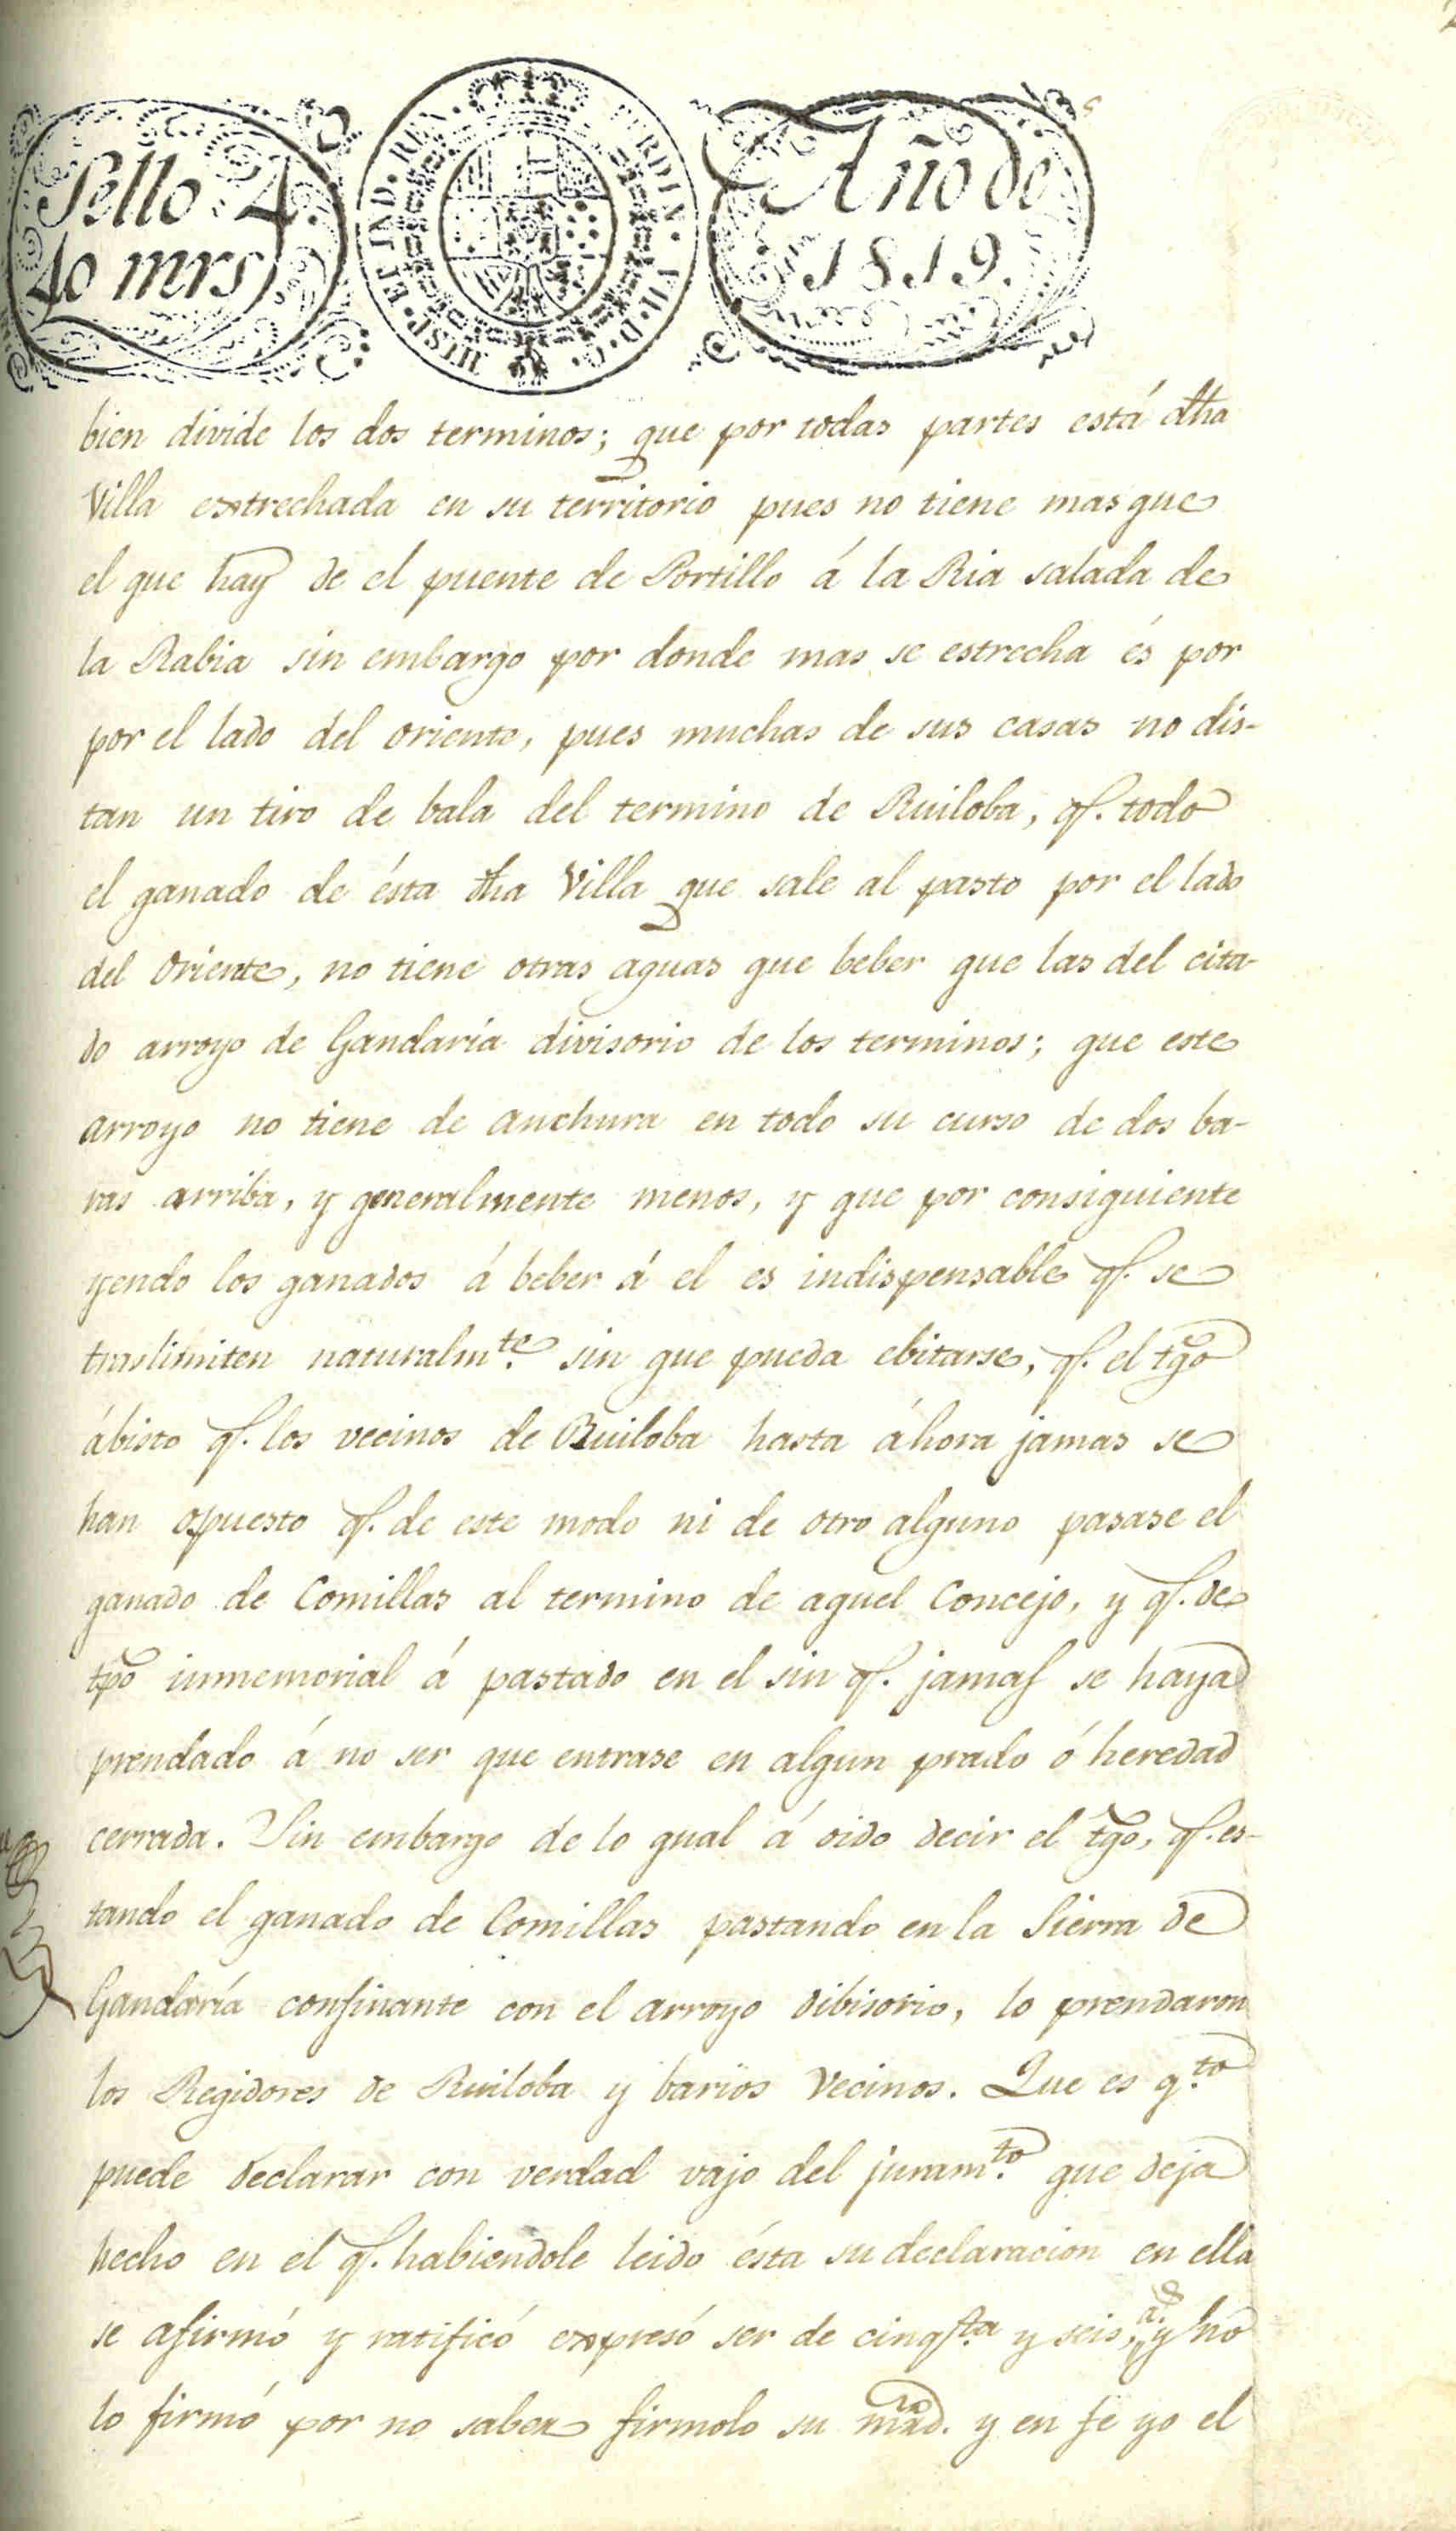 Sello 4.
40 mrs
FERDIN. VII. D. G. HISP. ET IND. REX.
Año de
1819.
bien divide los dos terminos; que por todas partes está dha
Villa extrechada en su territorio pues no tiene mas que
el que hay de el puente de Portillo á la Ria salada de
la Rabia sin embargo por donde mas se estrecha és por
por el lado del oriente, pues muchas de sus casas no dis-
tan un tiro de bala del termino de Ruiloba, q.̃ todo
el ganado de ésta dha Villa que sale al pasto por el lado
del oriente, no tiene otras aguas que beber que las del cita-
do arroyo de Gandaría divisorio de los terminos; que este
arroyo no tiene de anchura en todo su curso de dos ba-
ras arriba, y generalmente menos, y que por consiguiente
yendo los ganados á beber á el es indispensable q.̃ se
traslimiten naturalm.te sin que pueda ebitarse, q.̃ el tgo
ábisto q.̃ los vecinos de Ruiloba hasta áhora jamas se
han opuesto q.̃ de este modo ni de otro alguno pasase el
ganado de Comillas al termino de aquel Concejo, y q.̃ de
tpo inmemorial á pastado en el sin q.̃ jamas se haya
prendado á no ser que entrase en algun prado ó heredad
cerrada. Sin embargo de lo qual á oido decir el tgo, q.̃ es-
tando el ganado de Comillas pastando en la Sierra de
Gandaría confinante con el arroyo dibisorio, lo prendaron
los Regidores de Ruiloba y barios Vecinos. Que es q.to
puede declarar con verdad vajo del juram.to que deja
hecho en el q.̃ habiendole leido ésta su declaracion en ella
se afirmó y ratificó expresó ser de cinq.ta y seis a.s y no
lo firmó por no saber firmolo su mrd. y en fe yo el